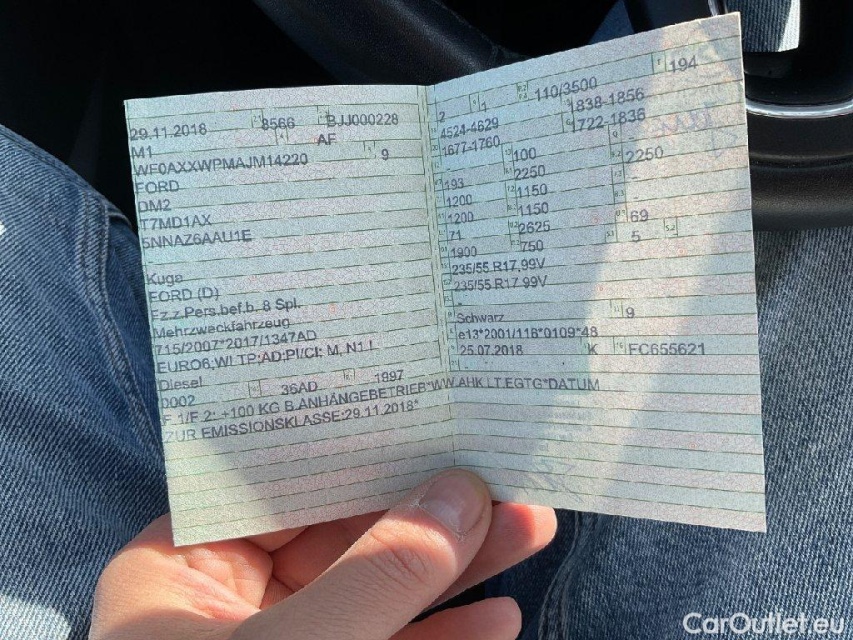 29.11.2018 8566 BJJ000228
M1 AF
WF0AXXWPMAJM14220 9
FORD
DM2
T7MD1AX
5NNAZ6AAU1E
Kuga
FORD (D)
Fz.z.Pers.bef.b. 8 Spl.
Mehrzweckfahrzeug
715/2007*2017/1347AD
EURO6;WLTP;AD;PI/CI; M, N1 I
Diesel
0002 36AD 1997
F.1/F.2: +100 KG B.ANHÄNGEBETRIEB*WW.AHK LT.EGTG*DATUM
ZUR EMISSIONSKLASSE:29.11.2018*
2 1 110/3500 194
4524-4629 1838-1856
1677-1760 1722-1836
100 2250
193 2250
1200 1150
1200 1150
71 2625 69
1900 750 5
235/55 R17,99V
235/55 R17,99V
Schwarz 9
e13*2001/116*0109*48
25.07.2018 K FC655621
CarOutlet.eu